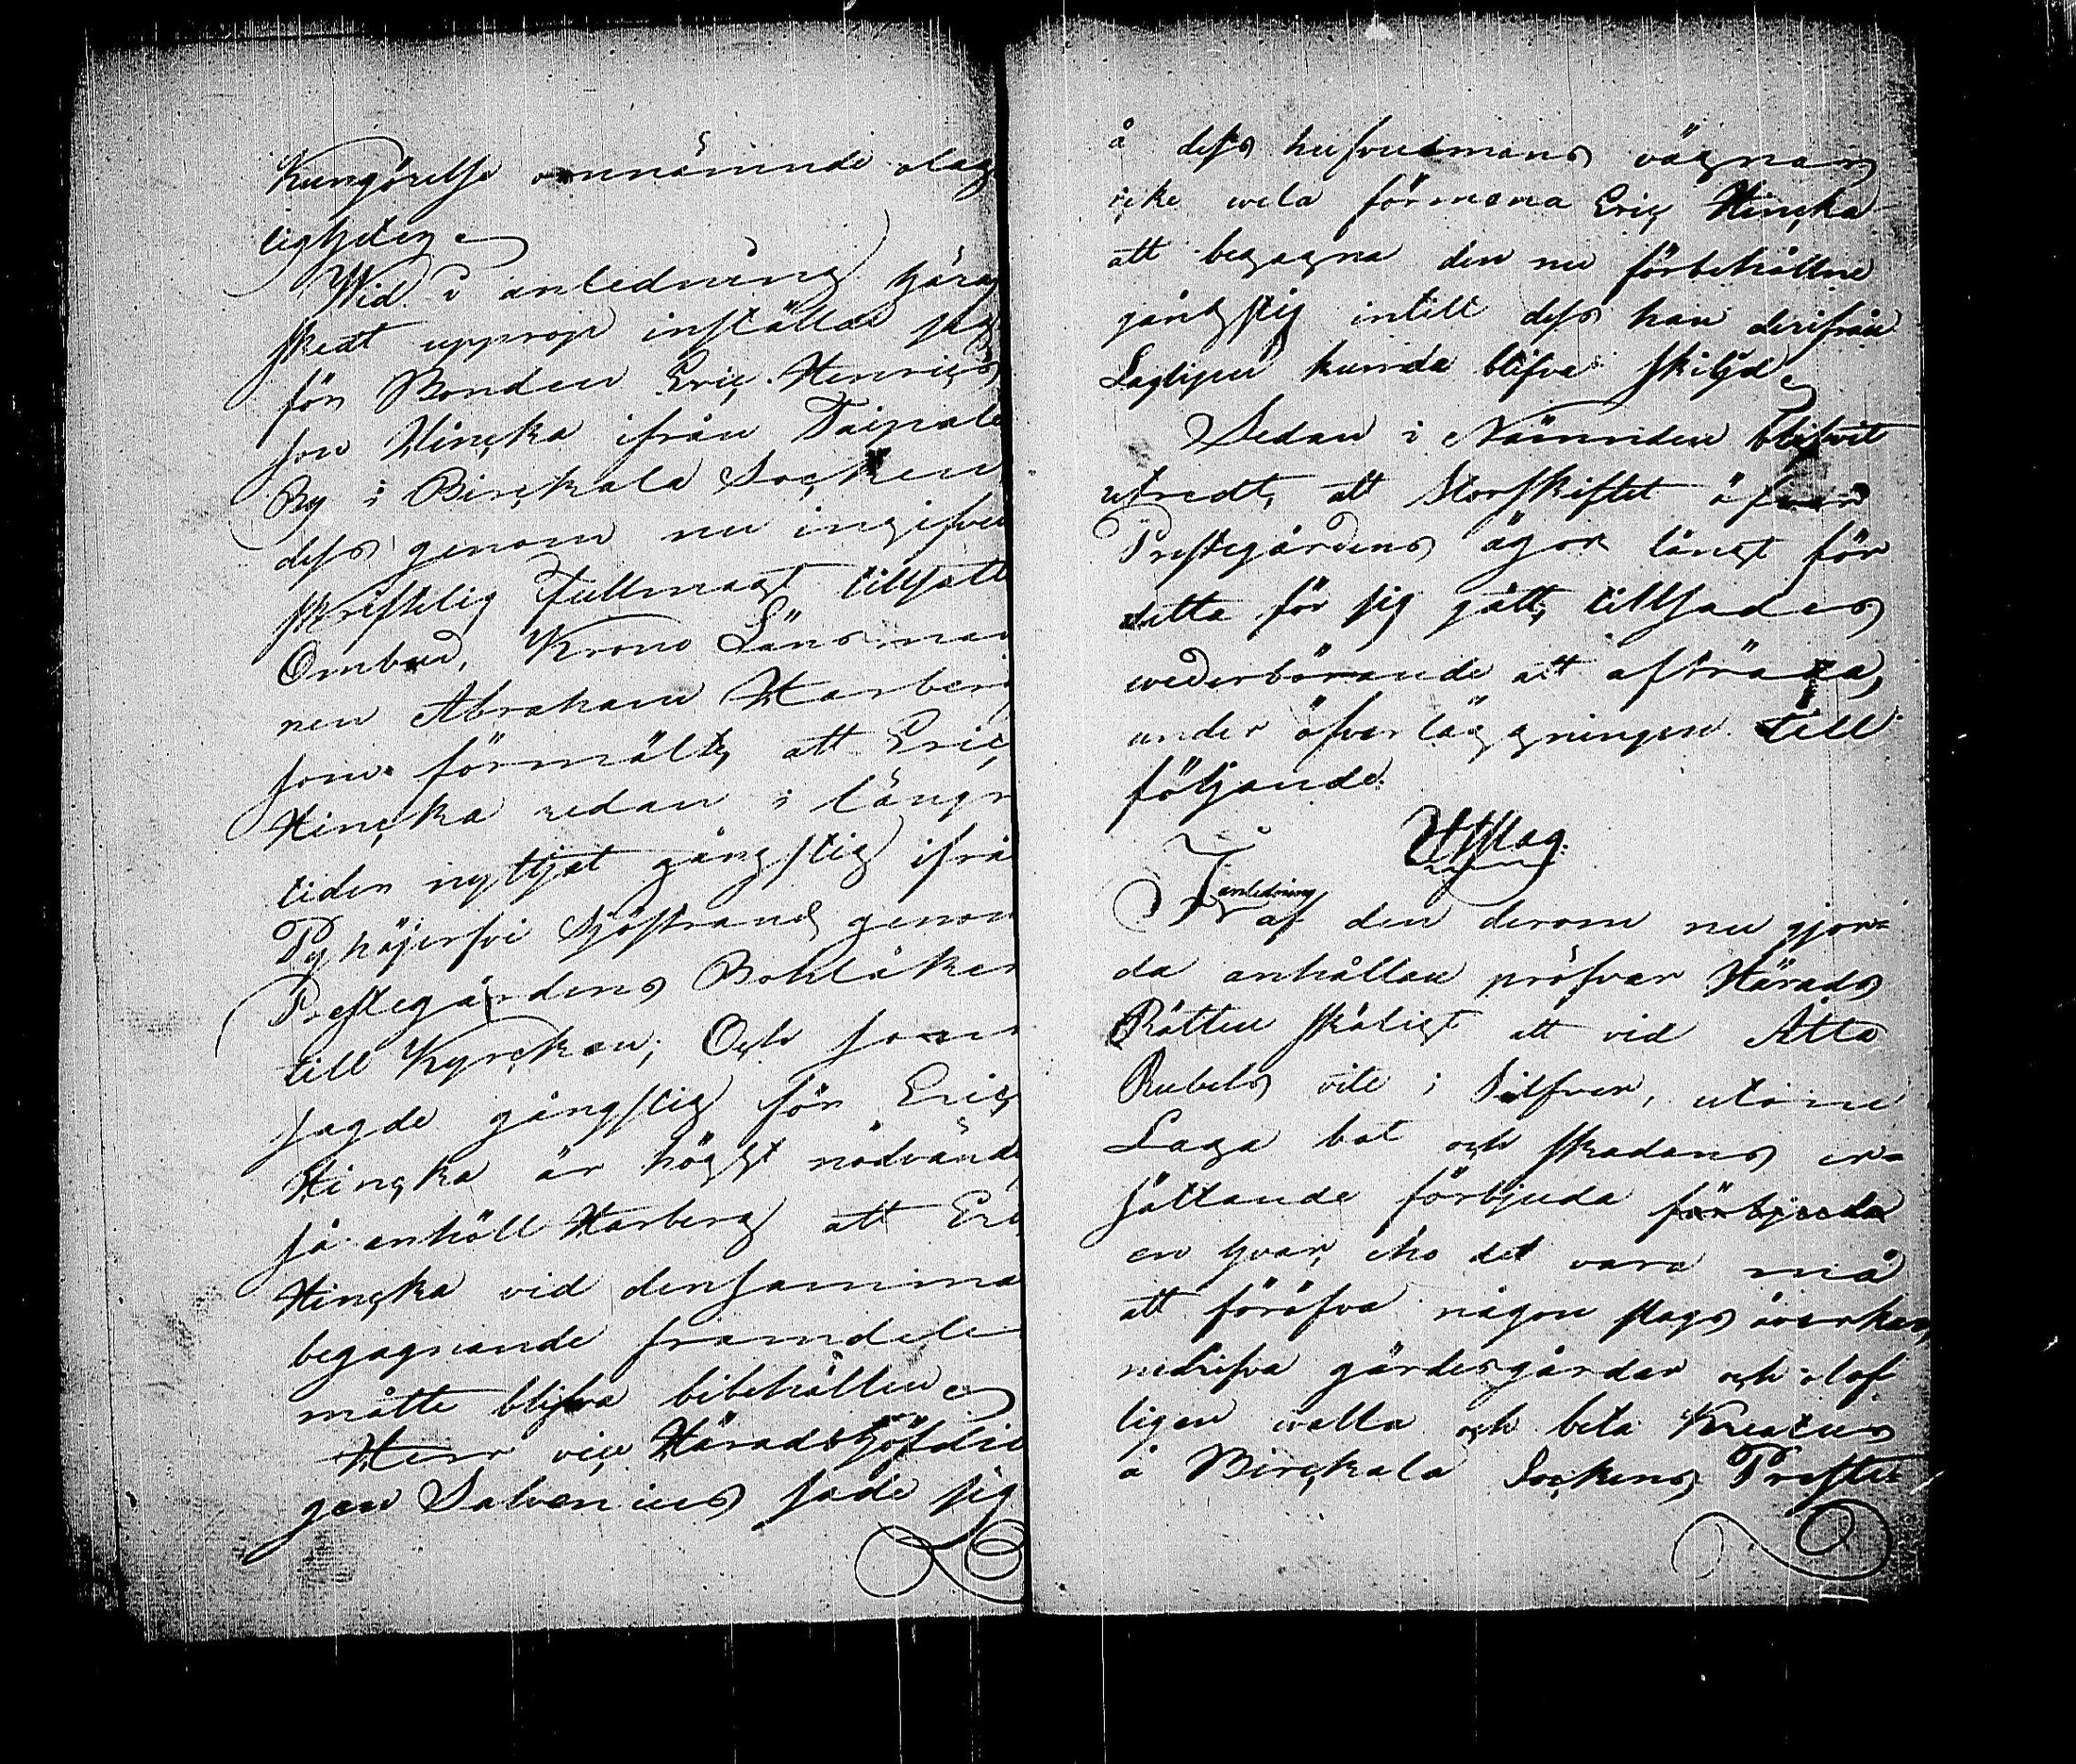 Kungörelse omnämnde olag
ligheten
Wid i anledning häraf
skedt upprop inställde sig
för Bonden Eric Henrics
son Hincka ifrån Taipale
By i Birckala Socken
dess genom nu ingifven
skriftelig Fullmagt tillsatte
Ombud, Krono Länsman
nen Abraham Harberg
som förmälte, att Eric
Hincka redan i längre
tider nyttjat gångstig ifrån
Pyhäjerfvi Sjöstrand genom
Prestegårdens Bohlåker
till Kyrckan; Och som
sagde gångstig för Eric
Hincka är högst nödvändig
så anhöll Harberg att Eric
Hincka vid densamma
begagnande framdeles
måtte blifva bibehållen
Herr vice Häradshöfdin
gen Salvenius sade sig
å dess hufvudmans vägnar
icke vela förmena Eric Hincka
att begagna den nu förbehållne
gångstig intill dess han derifrån
Lagligen kunde blifva skiljd
Sedan i Nämnden blifvit
utredt, att Storskiftet öfver
Prestegårdens ägor långt för
detta för sig gått, tillsades
wederbörande att afträda,
under öfverläggningen till
följande:
Utslag.
I anledning
af den derom nu gjor=
da anhållan pröfvar Härads
Rätten skäligt att vid Åtta
Rubels vite i Silfver, utom
Laga bot och skadans er=
sättande förbjuda förbjuda
en hvar, eho det vara må
att föröfva någon slags åverkan,
nedrifva gärdesgårdar och olof
ligen valla och beta Kreatur
å Birckala Sockens Preste